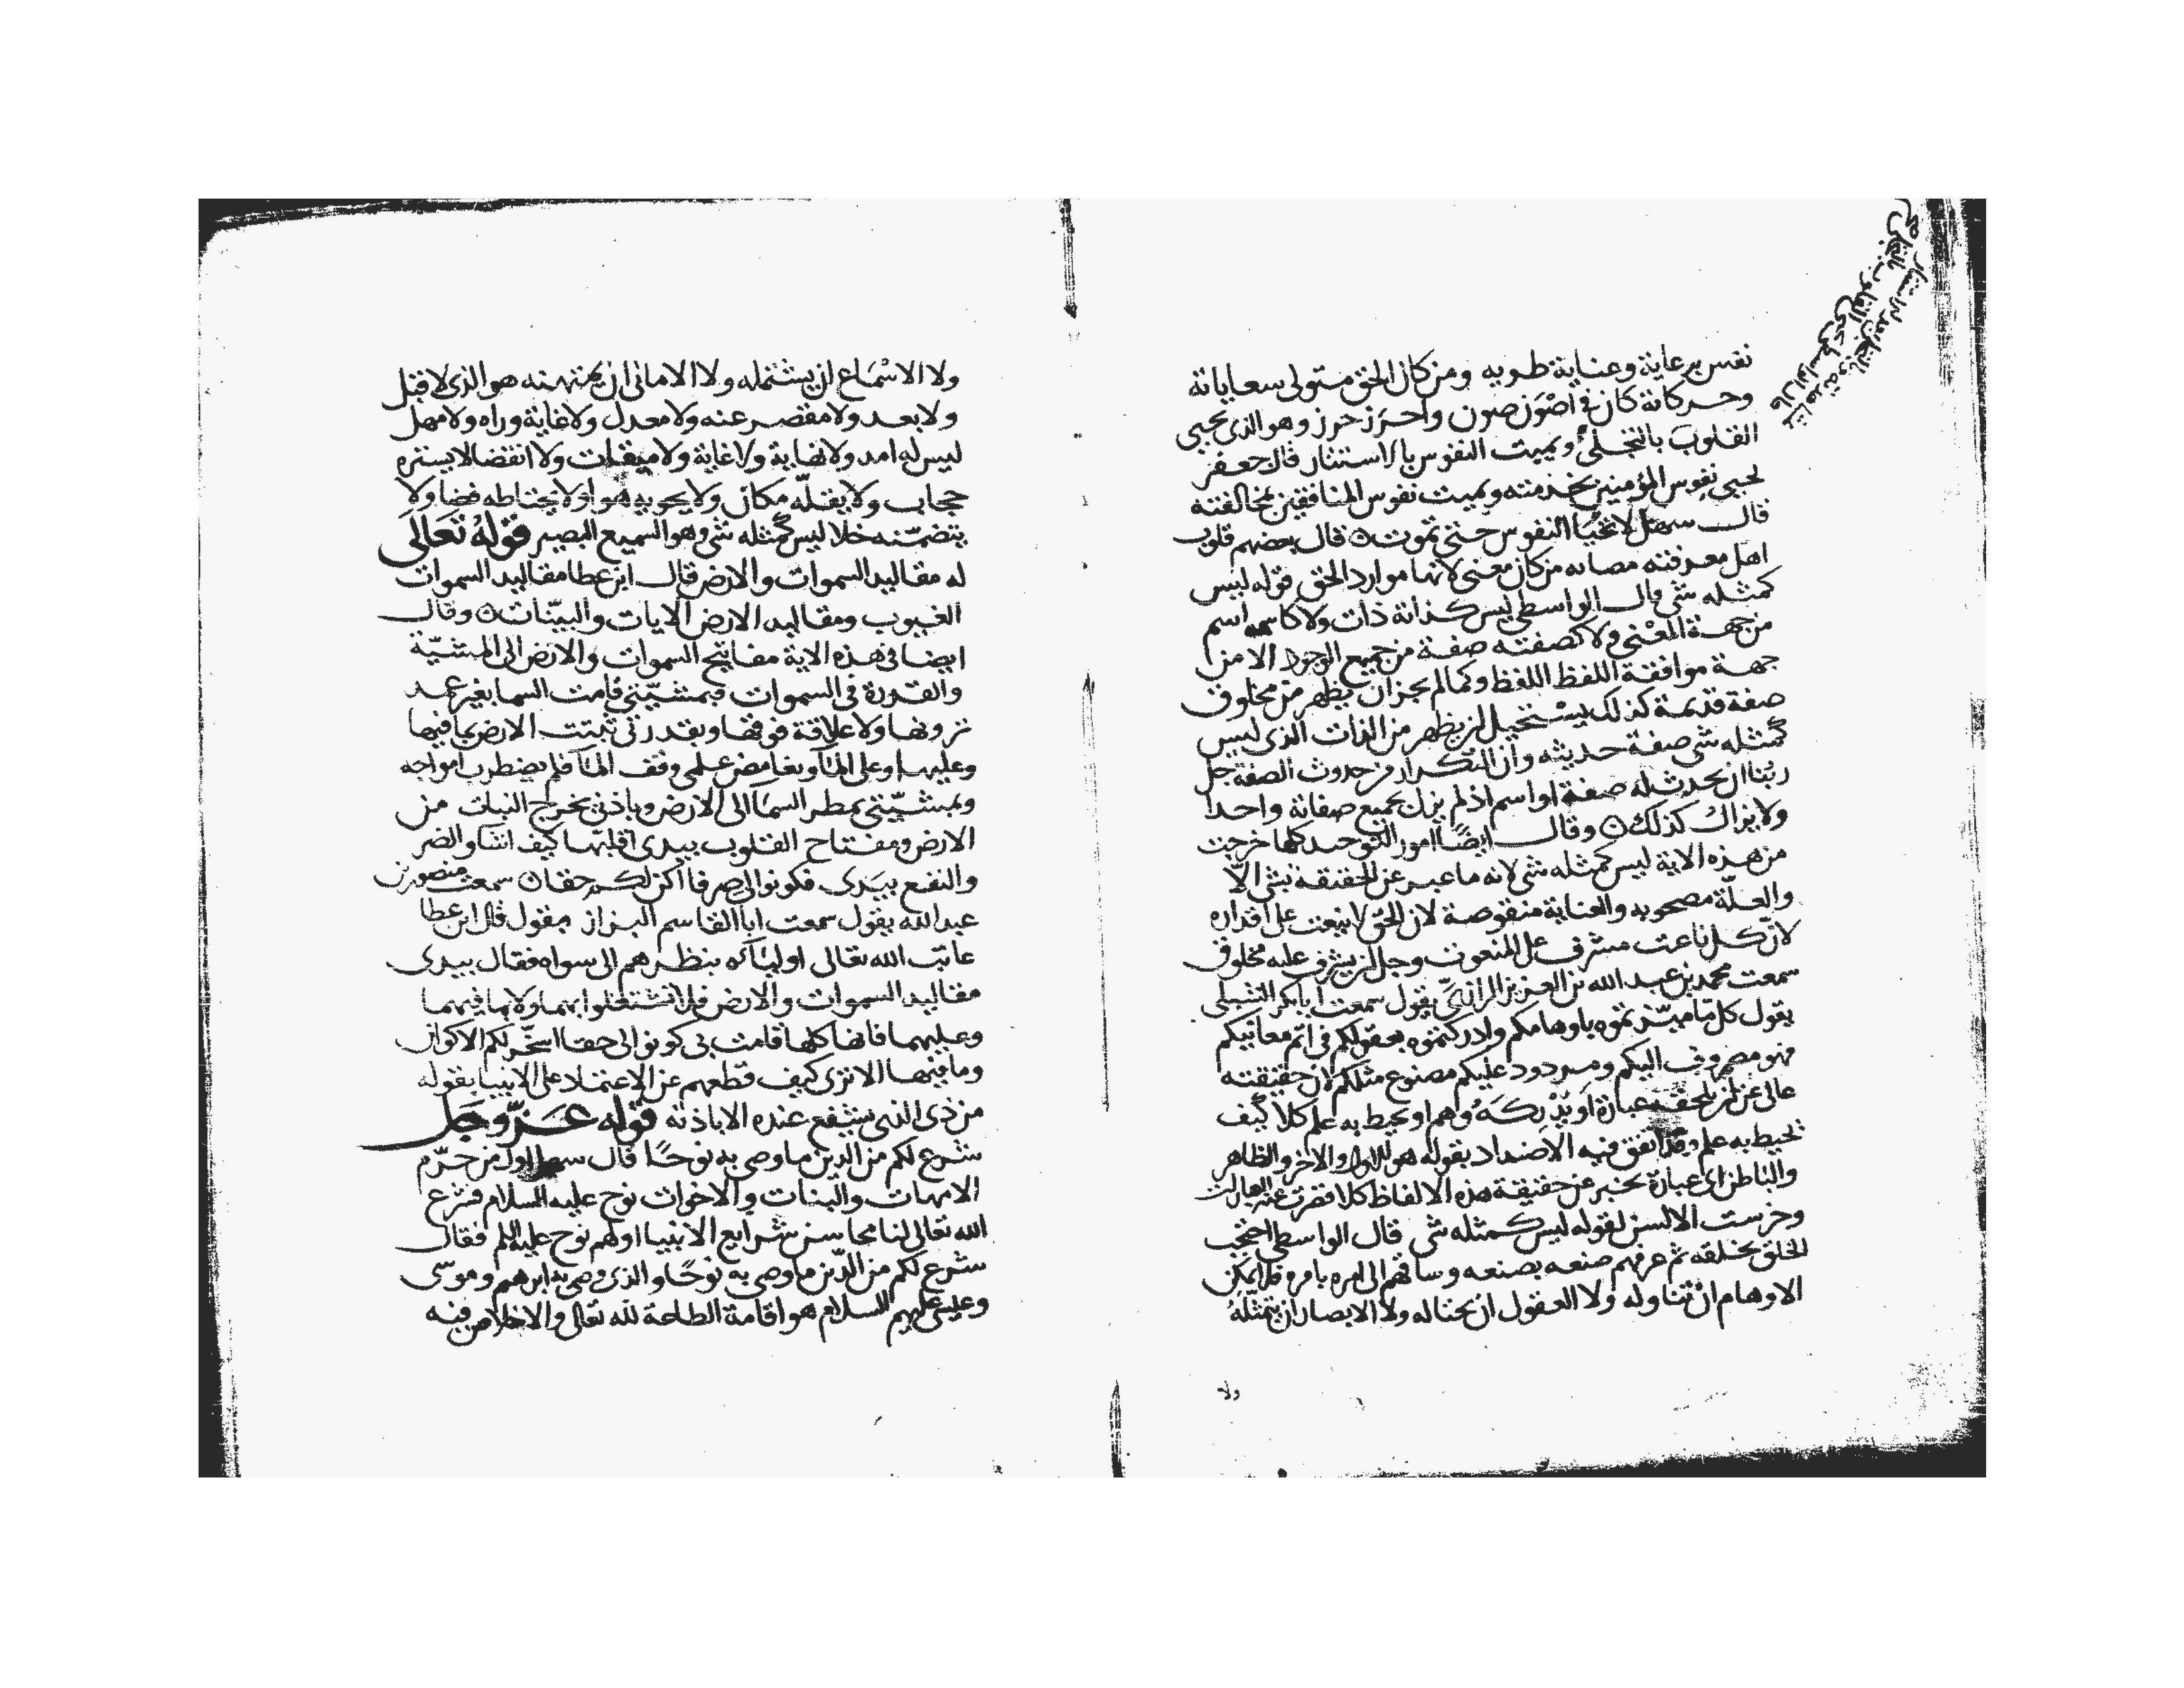 نفس برعاية وعناية طوبه ومن كان الحق متولى سعاياته
وحركاته كان فى اصْوَن صون واحرَز حرز وهو الذى يحيى
القلوب بالتجلى ويميت النفوس بالاستتار قال جعفر
يحيى نفوس المؤمنين بخدمته ويميت نفوس المنافقين بمخالفته
قال سهل لا تحيا النفوس حتى تموت ٥ قال بعضهم قلوب
اهل معرفته مصانه من كان معنى لانها موارد الحق قوله ليس
كمثله شى قال الواسطى ليس كذاته ذات ولا كاسمه اسم
من جهة المعْنى ولا كصفته صفة من جميع الوجوه الا من
جهة موافقة اللفظ اللفظ وكما لم يجز ان يظهر من مخلوق
صفة قديمة كذلك يسْتحيل ان يظهر من الذات الذى ليس
كمثله شى صفة حديثه وان التكرار من حدوث الصفة جل
ربّنا ان يحدث له صفة او اسم اذ لم يزل بجميع صفاته واحدا
ولا يزال كذلك ٥ وقال ايضًا امور التوحيد كلها خرجت
من هذه الاية ليس كمثله شى لانه ما عبر عن الحقيقة بشى الّا
والعلّة مصحوبه والعناية منقوصة لان الحق لا ينعت على اقداره
لانّ كل ناعت مشرف على المنعوت وجل ان يشرف عليه مخلوق
سمعت محمد بن عبد الله بن العزيز الرازىّ يقول سمعت ابا بكر الشبلى
يقول كل ما ميّزتموه باوهامكم وادركتموه بعقولكم فى اتم معانيكم
فهو مصروف اليكم ومردود عليكم مصنوع مثلكم لان حقيقته
عالى عن ان تلحقه عبارة اَو يُدْركَهُ وهم او يحيط به علم كلا كيف
يحيط به علم وقد اتفق فيه الاضداد بقوله هو الاول والاخر والظاهر
والباطن اى عبارة تخبر عن حقيقة هذه الالفاظ كلا قصرت عنه
وخرست الالسن لقوله ليس كمثله شى قال الواسطى احتجب
الخلق بخلقه ثم عرفهم صنعه بصنعه وساقهم الى امره بامره فلا يمكن
الاوهام ان تناوله ولا العقول ان تختاله ولا الابصار ان تمثّلهُ
ولا
ولا الاسْمَاع ان يشتمله ولا الامانى ان يمتهنه هو الذى لا قبل
ولا بعد ولا مقصر عنه ولا معدل ولا غاية وراه ولا مهل
ليس له امد ولا نهاية ولا غاية ولا ميقات ولا انقضا لا يستره
حجاب ولا يقلّه مكان ولا يحويه هوا ولا يحتاطه فضا ولا
يتضمّنه خلا ليس كمثله شى وهو السميع البصير قولهُ تَعَالَى
له مقاليد السموات والارض قال ابن عطا مقاليد السموات
الغيوب ومقاليد الارض الايات والبيّنات ٥ وقال
ايضا فى هذه الاية مفاتيح السموات والارض الى المشيّة
والقدرة فى السموات فبمشيّتى قامت السما بغير عمد
ترونها ولا علاقة فوقها وبقدرتى ثبتت الارض بما فيها
وعليها وعلى المآ وبغامض علمى وقف المآ فلم يضطرب امواجه
وبمشيّتى يمطر السمَا الى الارض وباذنى يخرج النبات من
الارض ومفتاح القلوب بيدى اقلبّها كيف اشآ والضر
والنفع بيَدى فكونوا لى صرفا اكن لكم حقا ٥ سمعت منصور بن
عبد الله يقول سمعت ابا القاسم البزاز يقول قال ابن عطا
عاتبَ الله تعالى اوليَآئه بنظرهم الى سواه فقال بيدى
مقاليد السموات والارض فلا تشتغلوا بهما ولا بما فيهما
وعليهما فانها كلها قامت بى كونوا لى حقا اسخّر لكم الاكوان
وما فيها الا ترى كيف قطعهم عن الاعتماد على الانبيا بقوله
من ذى الذى يشفع عنده الا باذنه قوله عَزّ وجَل
شرع لكم من الدّين ما وصى به نوحًا قال سهل اول من حرّم
الامهات والبنات والاخوات نوح عليه السلام فشرع
الله تعالى لنا محاسن شرايع الانبيا اولهم نوح عليه السلم فقال
شرع لكم من الدّين ما وصى به نوحًا والذى وصى به ابرهيم وموسى
وعيسى عليهم السلام هو اقامة الطاعة لله تعالى والاخلاص فيه